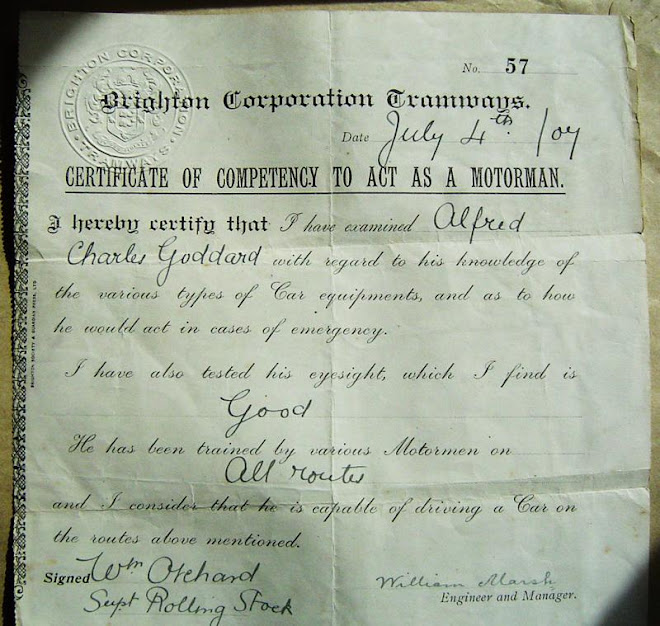 No. 57
BRIGHTON CORPORATION
TRAMWAYS
Brighton Corporation Tramways.
Date July 4th /07
CERTIFICATE OF COMPETENCY TO ACT AS A MOTORMAN.
I hereby certify that I have examined Alfred
Charles Goddard with regard to his knowledge of
the various types of Car equipments, and as to how
he would act in cases of emergency.
I have also tested his eyesight, which I find is
Good
He has been trained by various Motormen on
All routes
and I consider that he is capable of driving a Car on
the routes above mentioned.
Signed Wm Orchard
Supt Rolling Stock
William Marsh
Engineer and Manager.